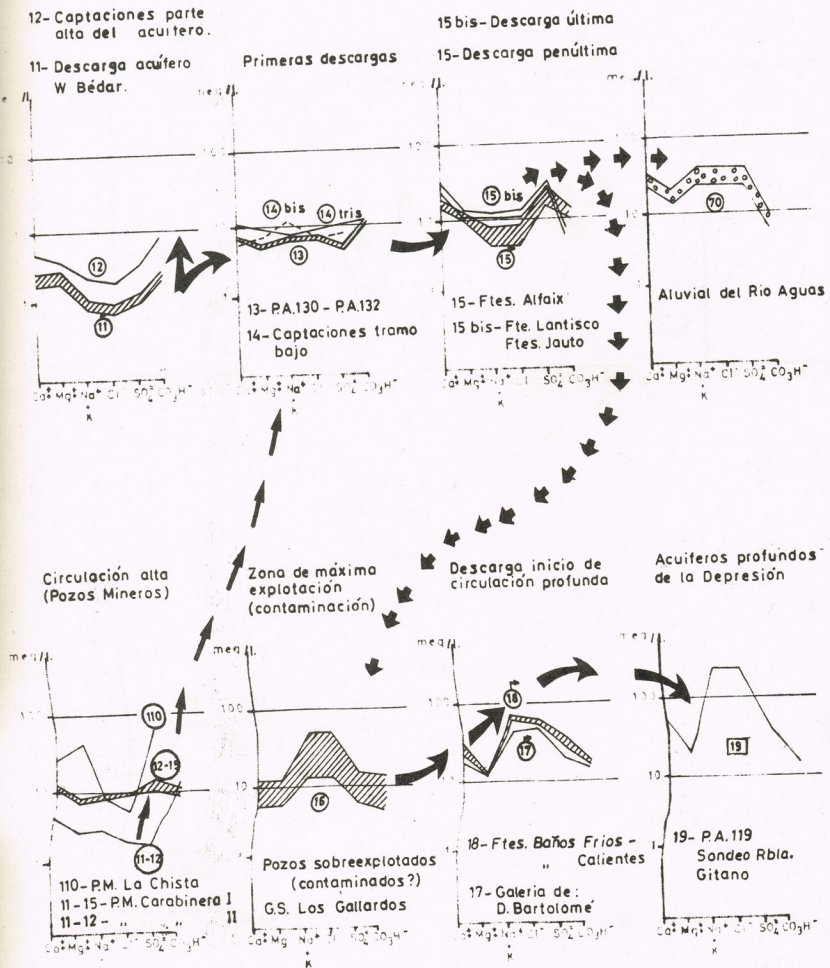 12- Captaciones parte
alta del acuitero.
11- Descarga acuífero
W Bédar.
Primeras descargas
15 bis- Descarga última
15- Descarga penúltima
meq/l.
12
11
Ca‡ Mg‡ Na⁺ Cl⁻ SO₄⁼ CO₃H⁻
K
meq/l.
100
14 bis
14 tris
13
13- P.A.130 - P.A.132
14- Captaciones tramo
bajo
Ca‡ Mg‡ Na⁺ Cl⁻ SO₄⁼ CO₃H⁻
K
meq/l.
15 bis
15
15- Ftes. Alfaix
15 bis- Fte. Lantisco
Ftes. Jauto
Ca‡ Mg‡ Na⁺ Cl⁻ SO₄⁼ CO₃H⁻
K
meq/l.
10
70
Aluvial del Rio Aguas
Ca‡ Mg‡ Na⁺ Cl⁻ SO₄⁼ CO₃H⁻
K
Circulación alta
(Pozos Mineros)
Zona de máxima
explotación
(contaminación)
Descarga inicio de
circulación profunda
Acuiferos profundos
de la Depresión
meq/l.
100
10
1
110
12-15
11-12
110- P.M. La Chista
11-15- P.M. Carabinera I
11-12- " " II
Ca‡ Mg‡ Na⁺ Cl⁻ SO₄⁼ CO₃H⁻
K
meq/l.
100
10
1
16
Pozos sobreexplotados
(contaminados?)
G.S. Los Gallardos
Ca‡ Mg‡ Na⁺ Cl⁻ SO₄⁼ CO₃H⁻
K
meq/l.
100
10
1
18
17
18- Ftes. Baños Frios -
" Calientes
17- Galeria de:
D. Bartolomé
Ca‡ Mg‡ Na⁺ Cl⁻ SO₄⁼ CO₃H⁻
K
meq/l.
100
10
1
19
19- P.A.119
Sondeo Rbla.
Gitano
Ca‡ Mg‡ Na⁺ Cl⁻ SO₄⁼ CO₃H⁻
K